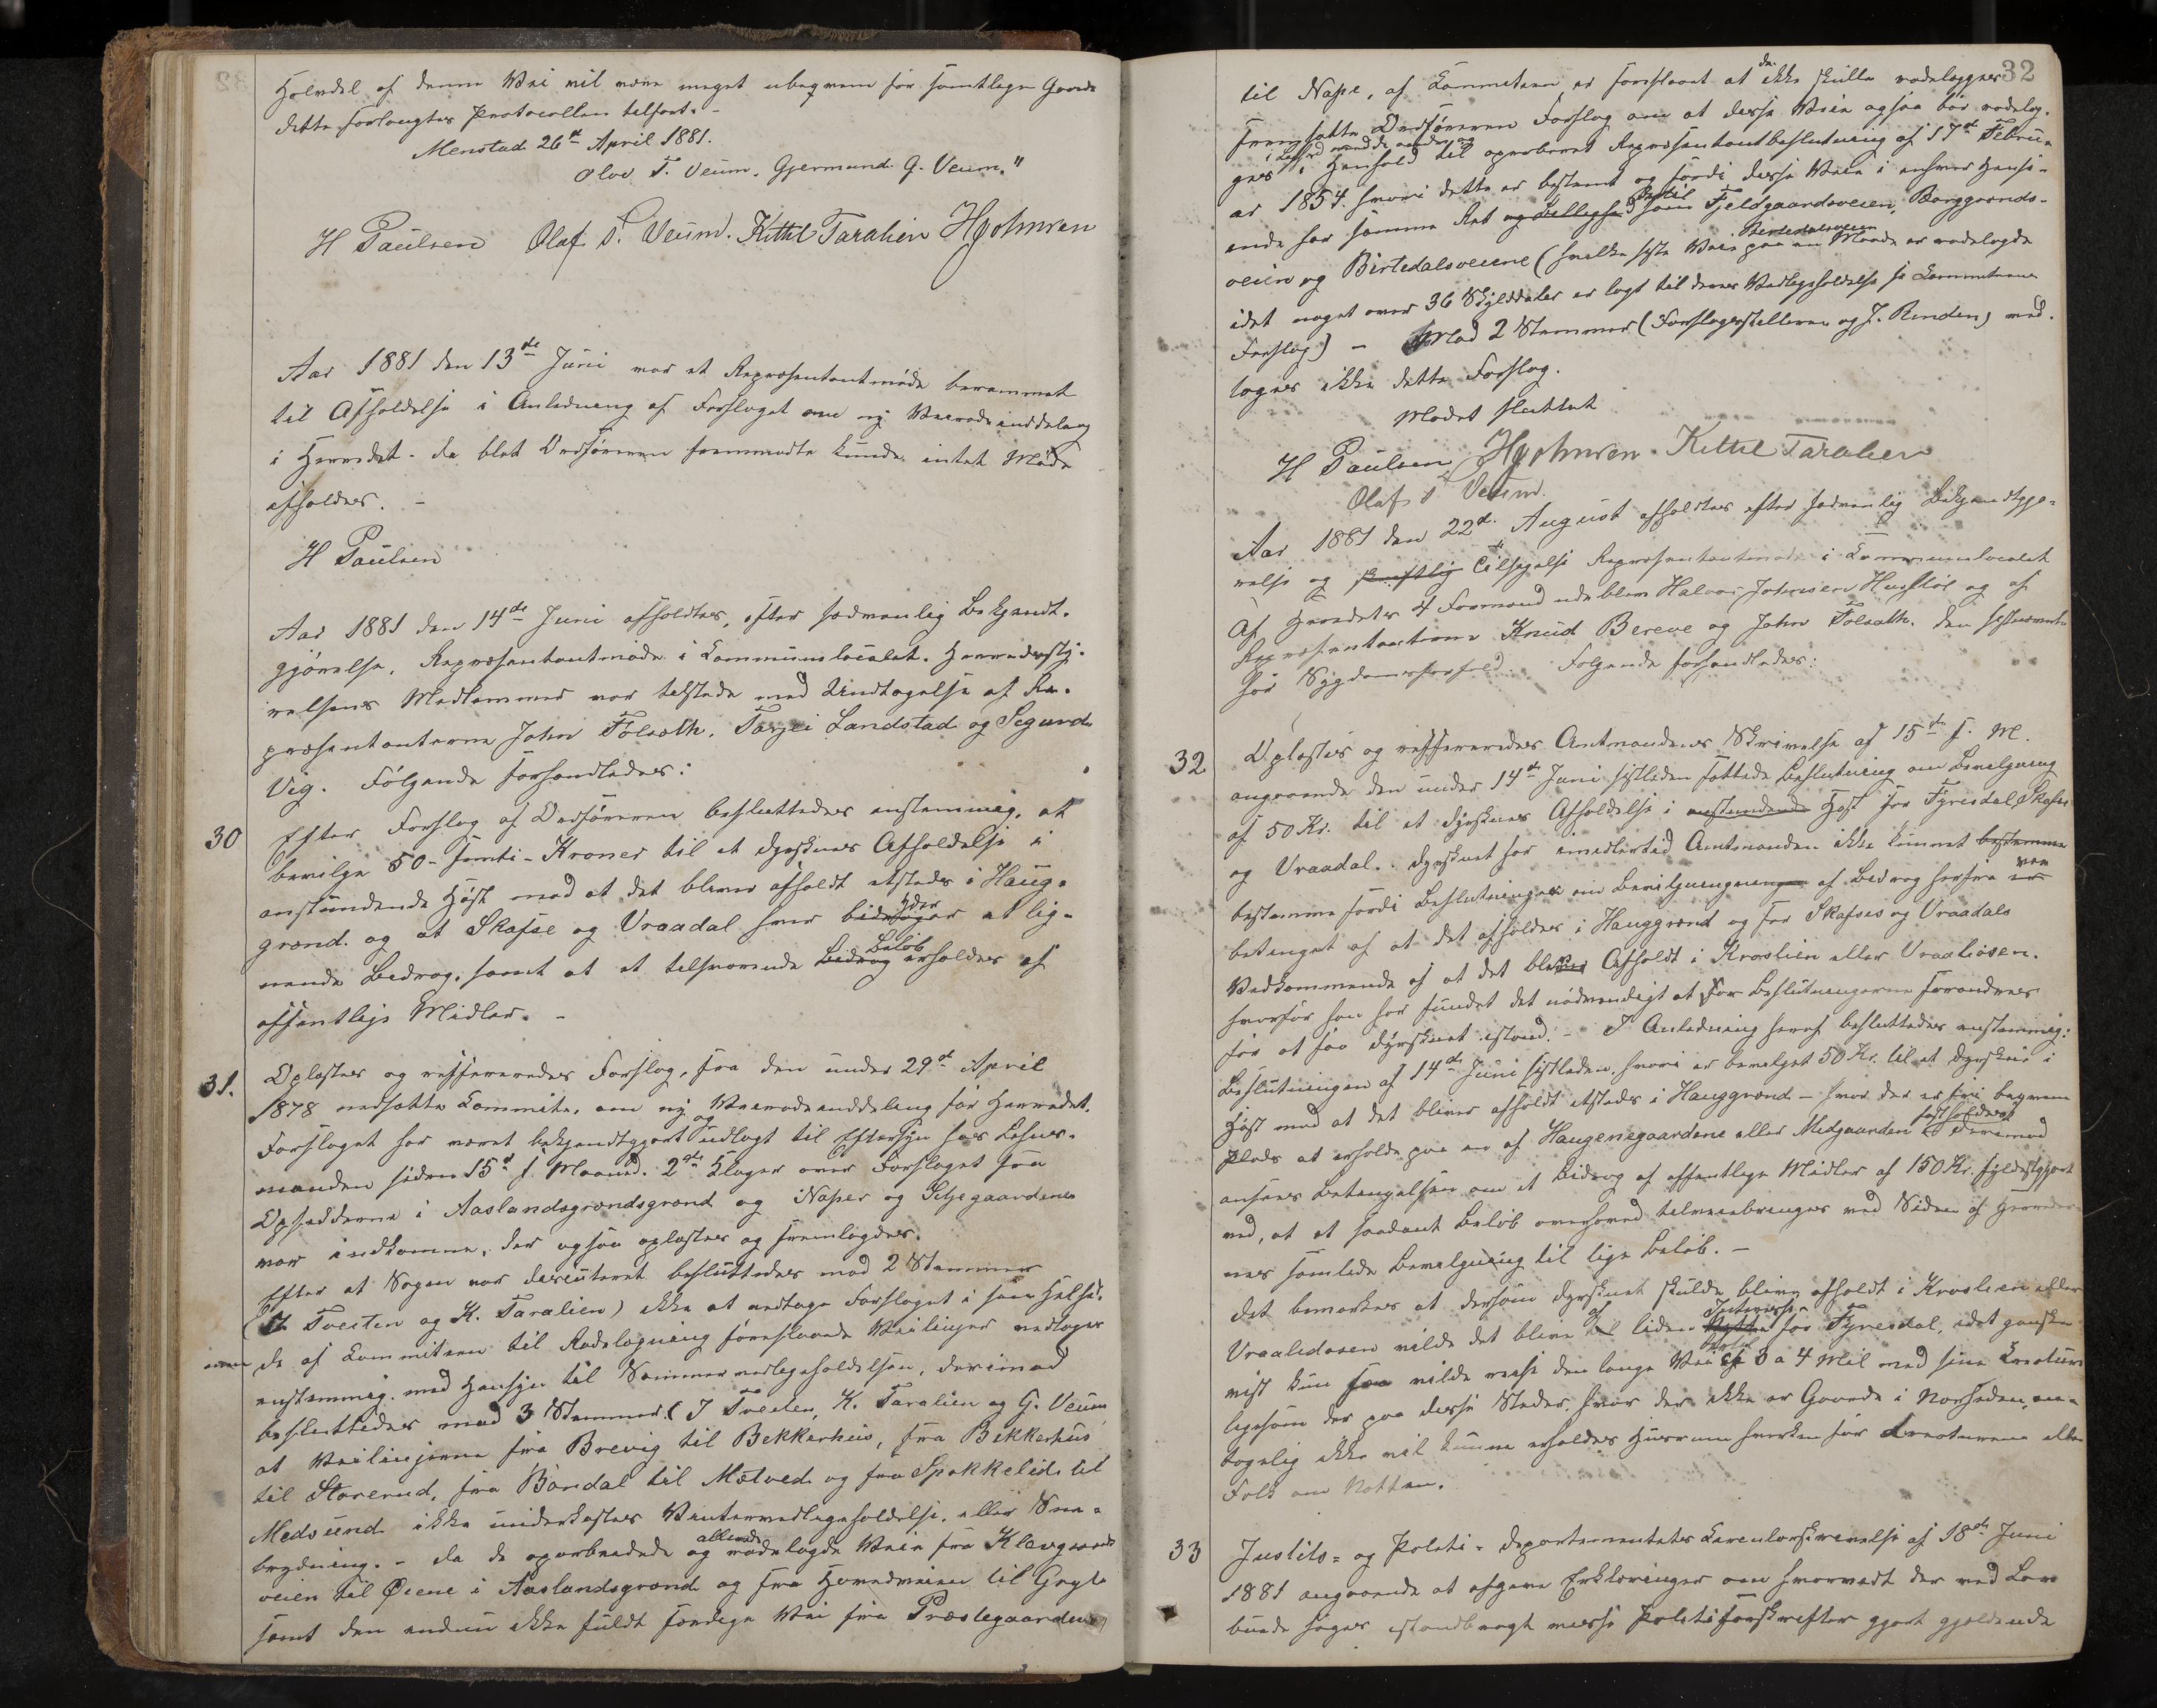 Halvdel af denne Vei vil være meget ubeqvem for samtlige Gaarde
dette forlangtes Protocollen tilført. -
Menstad 26de April 1881.
Olav T. Veum. Gjermund G. Veum."
H Paulsen Olaf T. Veum. Kittil Taralien HJohnsen
Aar 1881 den 13de Juni var et Repræsentantmøde berammet
til Afholdelse i Anledning af Forslaget om ny Veirodeinddeling
i Herredet - da blot Ordføreren fremmødte kunde intet Møde
afholdes. -
H Paulsen
Aar 1881 den 14de Juni afholdtes, efter sædvanlig Bekjendt-
gjørelse, Repræsentantmøde i Communelocalet. Herredssty-
relsens Medlemmer var tilstede med Undtagelse af Re-
præsentanterne John Tolsath, Tarjei Landstad og Segund
Vig. Følgende forhandledes:
30 Efter Forslag af Ordføreren besluttedes enstemmig, at
bevilge 50 - femti - Kroner til et Dyrskues Afholdelse i
anstundende Høst mod at det bliver afholdt etsteds i Haug-
grænd. og at Skafse og Vraadal hver bidrager yder et lig-
nende Bedrag, samt at et tilsvarende Bedrag Beløb erholdes af
offentlige Midler. -
31. Oplæstes og refereredes Forslag, fra den under 29de April
1878 nedsatte Committe, om ny Veirodeinddeling for Herredet.
Forslaget har været bekjendtgjort og udlagt til Eftersyn hos Lehns-
manden siden 15de f. Maaned. 2de Klager over Forslaget fra
Opsidderne i Aaslandsgrændsgrænd og Naper og Seljegaardene
var indkomne, der ogsaa oplæstes og fremlagdes.
Efter at Sagen var discuteret besluttedes mod 2 Stemmer
(T. Tveiten og K. Taralien) ikke at vedtage Forslaget i sin Helhed,
men de af Committeen til Rodelægning foreslaaede Veilinjer vedtoges
enstemmig med Hensyn til Sommervedligeholdelsen, derimod
besluttedes mod 3 Stemmer (T Tveiten, K. Taralien og G. Veum
at Veilinjerne fra Brevig til Bekkerhus, fra Bekkerhus
til Storerud, fra Bondal til Mælved og fra Spokkelid til
Medsund ikke underkastes Vintervedligeholdelse, eller Sne-
brydning. - da de oparbeidede og allerede rodelagde Veie fra Klevgaards
veien til Øiene i Aaslandsgrænd og fra Hovedveien til Greyle
samt den endnu ikke fuldt færdige Vei fra Præstegaarden
32
til Nape, af Committeen er foreslaaet at de ikke skulle rodelægges
fremsatte Ordføreren Forslag om at disse Veie ogsaa bør rodelæg-
ges i Henhold til approberet Repræsentantbeslutning af 17de Febru-
ar 1854 hvori dette er bestemt og fordi disse Veie i enhver Hense-
ende har samme Ret og Billighed dertil som Fjeldgaardsveien, Borggrænds-
veien og Birtedalsveiene (hvilke siste Veie Birtedalsveien paa en Maade er rodelagde
idet noget over 36 Skylddaler er lagt til denes Vedligeholdelse se Committeens
Forslag) - Mod 2 Stemmer (Forslagsstilleren og J. Rinden) ved-
toges ikke dette Forslag.
Mødet sluttet
H Paulsen HJohnsen. Kittil Taralien
Olaf T Veum.
Aar 1881 den 22de August afholdtes efter sædvanlig Bekjendtgjø-
relse og skriftlig Tilsigelse Repræsentantmøde i Communelocalet
Af Herredets 4 Formænd udeblev Halvor Johnsen Husstøl og af
Repræsentanterne Knud Bereve og John Tolsath. den sistnævnte
for Sygdomsforfald. Følgende forhandledes:
32 Oplæstes og refereredes Amtmandens Skrivelse af 15de f. M.
angaaende den under 14de Juni sistleden fattede Beslutning om Bevilgning
af 50 Kr. til et Dyrskues Afholdelse i anstundende Høst for Fyresdal, Skafse
og Vraadal. Dyrskuet har imidlertid Amtmanden ikke kunnet bestemme
bestemme fordi Beslutningen om Bevilgningen af Bedrag herfra er var
betinget af at det afholdes i Hauggrænd og for Skafses og Vraadals
Vedkommende af at det blev Afholdt i Kroslien eller Vraaliosen.
hvorfor han har fundet det nødvendigt at før Beslutningerne forandres
for at faa Dyrskuet istand. - I Anledning heraf besluttedes enstemmig:
Beslutningen af 14de Juni sistleden, hvori er bevilget 50 Kr. til et Dyrskue i
Høst mod at det bliver afholdt etsteds i Hauggrænd - hvor der er fri beqvem
Plads at erholde paa en af Haugenegaardene eller Midgaarden fastholdes derimod
ansees Betingelsen om et Bidrag af offentlige Midler af 150 Kr. fyldestgjort
ved, at et saadant Beløb overhoved tilveiebringes ved Siden af Herreder-
nes samlede Bevilgning til lige Beløb. -
Det bemærkes at dersom Dyrskuet skulde blive afholdt i Kroslien eller
Vraaliosen vilde det blive af liden Nytte Interesse for Fyresdal, idet ganske
vist kun faa vilde reise den lange Vei af 3 a 4 Mil med sine Creature
ligesom der paa disse Steder, hvor der ikke er Gaarde i Nærheden, an-
tagelig ikke vil kunne erholdes Husrum hverken for Creaturene eller
Folk om Natten.
33 Justits- og Politi-Departementets Circulærskrivelse af 18de Juni
1881 angaaende at afgive Erklæringer om hvorvidt der ved Lov
burde søges istandbragt visse Politiforskrifter gjort gjældende